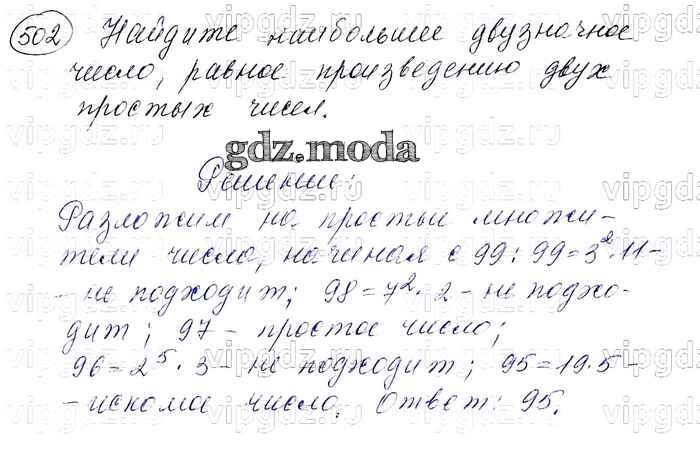 502 Найдите наибольшее двузначное
число, равное произведению двух
простых чисел.
gdz.moda
Решение:
Разложим на простые множи-
тели число, начиная с 99: 99=3²·11-
- не подходит; 98=7²·2- не подхо-
дит; 97- простое число;
96=2⁵·3- не подходит; 95=19·5-
- искомое число. Ответ: 95.